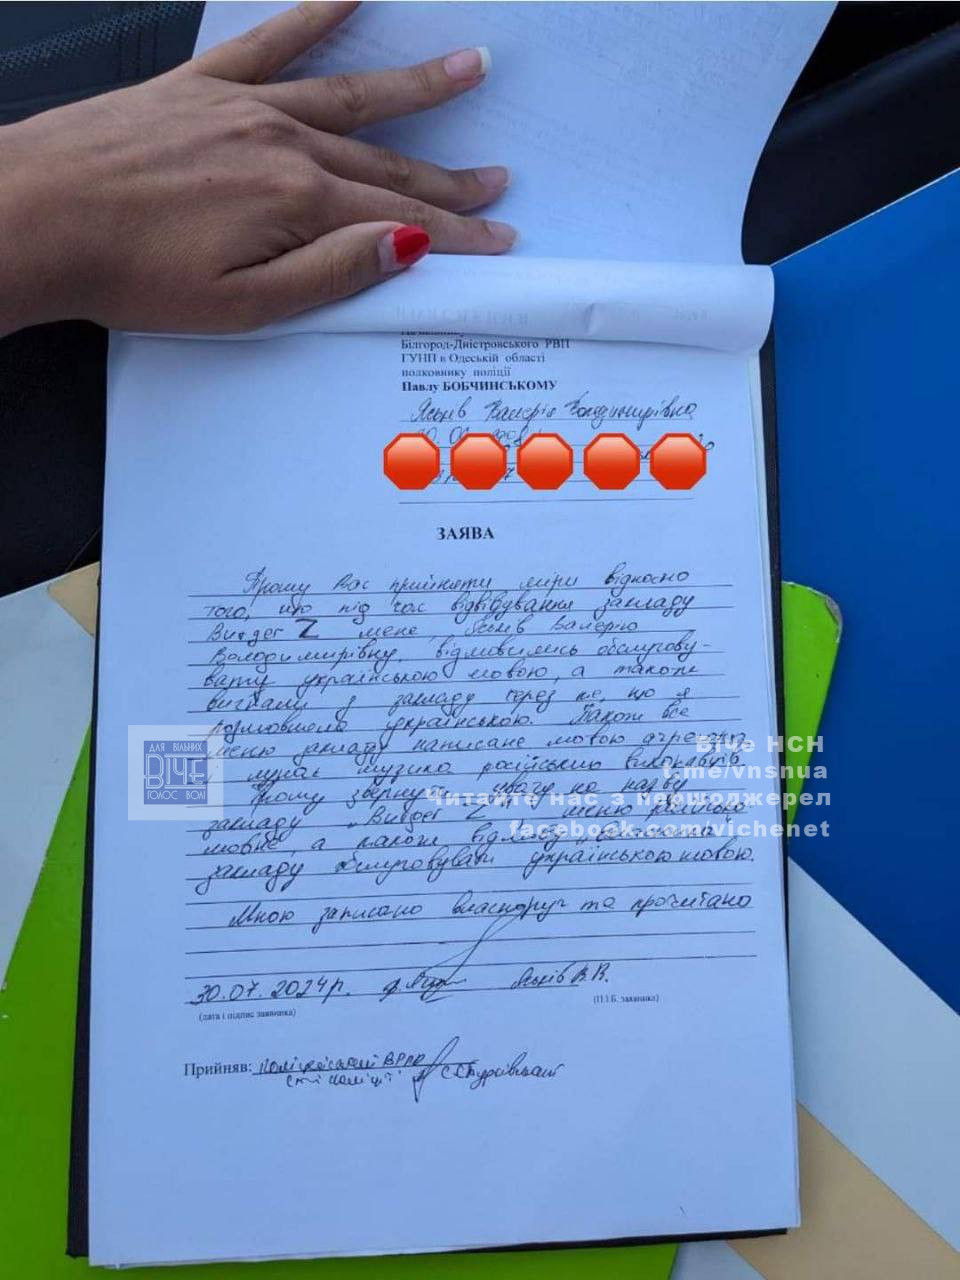 ПОЯСНЕННЯ
Начальнику
Білгород-Дністровського РВП
ГУНП в Одеській області
полковнику поліції
Павлу БОБЧИНСЬКОМУ
Яськів Валерія Володимирівна
ЗАЯВА
Прошу Вас прийняти міри відносно
того, що під час відвідування закладу
Z мене, Яськів Валерію
Володимирівну, відмовились обслугову-
вати українською мовою, а також
вигнали з закладу через те, що я
розмовляла українською. Також все
меню закладу написане мовою агресора
і лунає музика російських виконавців
Тому звернути увагу на назву
закладу Z меню
мовне, а також відмову
закладу обслуговувати українською мовою.
Мною записано власноруч та прочитано
30.07.2024р. Яськів В.В.
(дата і підпис заявника) (П.І.Б. заявника)
Прийняв: поліцейський ВРПП
ДЛЯ ВІЛЬНИХ
ВІЧЕ
ГОЛОС ВОЛІ
Віче НСН
t.me/vnsnua
Читайте нас з першоджерел
facebook.com/vichenet